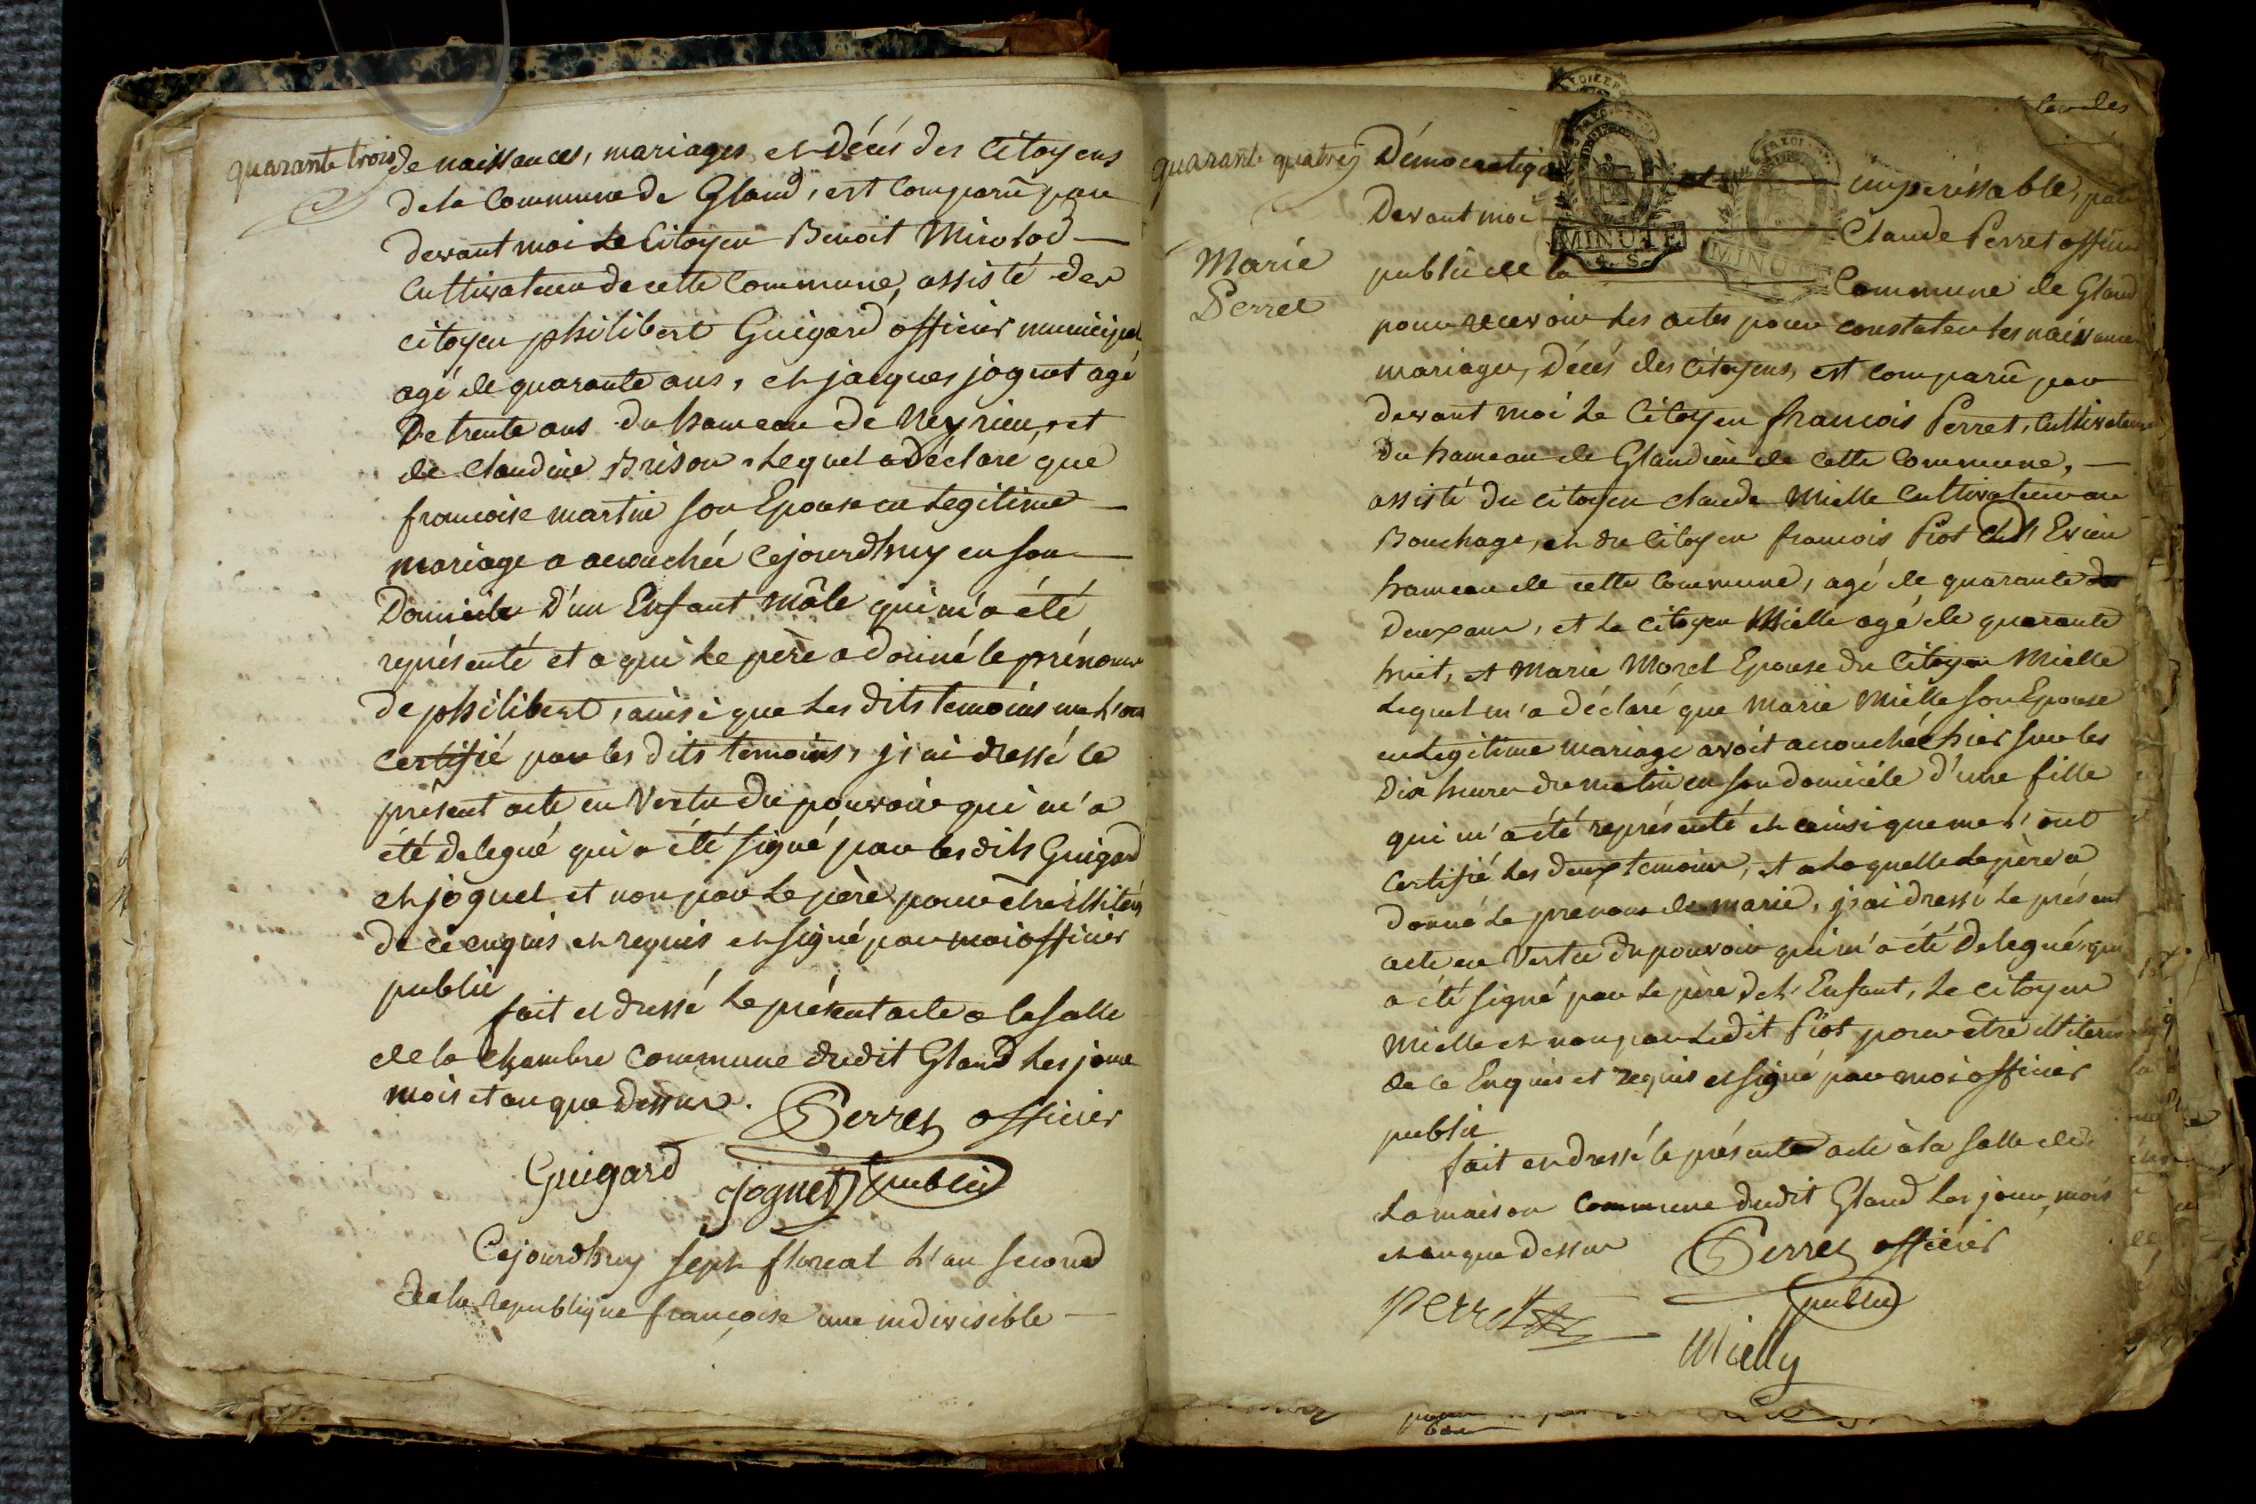 quarante trois
de naissances, mariages et décés des Citoyens
de la Commune de Gland, est Comparû par
devant moi Le Citoyen Benoit
Cultivateur de cette Commune, assisté des
citoyen philibert Guigard officier municipal
agé de quarante ans, et jacques joguet agé
De trente ans du hameau de Neyrieu, et
de Claudine Brison Lequel a déclaré que
francoise martin son Epouse en Legitime
mariage a acouchée Cejourdhuy en son
Domicile D'un Enfant mâle qui m'a été
représenté et a qui Le père a donné le prénom
de philibert, ainsi que Les dits temoins me l'ont
certifié par les dits temoins, j'ai dressé le
présent acte en Vertu du pouvoir qui m'a
été delegué qui a été signé par les dits Guigard
et joguet et non par Le père pour être illiteré
de ce enquis et requis et signé par moi officier
public
fait et dressé Le présent acte a la salle
de la Chambre Commune dudit Gland Les jour
mois et an que dessus.
Perret officier
public
Guigard
joguet
Cejourdhuy sept floreal L'an second
de la republique françoise une indivisible
quarante quatre
Marie
Perret
Démocratique et imperissable, par
Devant moi Claude Perret officier
public de la Commune de Gland
MINUTE
MINUTE
pour recevoir Les actes pour constater Les naissances
mariages, Décés des Citoyens, est comparû par
devant moi Le Citoyen francois Perret, Cultivateur
du hameau de Glandieu de cette Commune,
assisté du citoyen claude Mielle Cultivateur au
Bouchage, et du Citoyen francois Piot d'Evieu
hameau de cette Commune, agé de quarante
Deux ans, et Le Citoyen Mielle agé de quarante
huit, et Marie Morel Epouse du Citoyen Mielle
Lequel m'a déclaré que Marie Mielle son Epouse
en Legitime mariage avoit acouchée hier sur les
Dix heures du matin en son domicile d'une fille
qui m'a été représenté et ainsi que me l'ont
certifié Les deux temoins, et a Laquelle Le père a
donné Le prenom de marie, j'ai dressé Le présent
acte en Vertu du pouvoir qui m'a été Delegué, qui
a été signé par Le père de L'Enfant, Le citoyen
Mielle et non par Ledit Piot pour être illiteré
de ce Enquis et requis et signé par moi officier
public
fait et dressé le présent acte à la salle de
La maison Commune dudit Gland Les jour, mois
et an que dessus
Perret officier
public
perret
Mielly